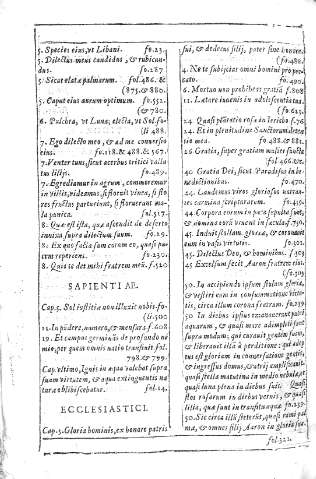 5. Species eius, vt Libani. fo.23.
5. Dilectus meus candidus, & rubicun-
dus. fo.287.
5. Sicut elatæ palmarum. fol.486. &
(875. & 880.
5. Caput eius aurum optimum. fo.551.
(& 780.
6. Pulchra, vt Luna, electa, vt Sol. fo-
li 488.
7. Ego dilecto meo, & ad me conuersio
eius. fo.118. & 488. & 567.
7. Venter tuus, sicut aceruus tritici valla
tus lilijs. fo.489.
7. Egrediamur in agrum, commoremur
in villis, videamus, si floruit vinea, si flo
res fructus parturiunt, si floruerunt ma-
la punica. fol.517.
8. Quæ est ista, quæ ascendit de deserto
innixa supra dilectum suum. fo.29.
8. Ex quo facta sum coram eo, quasi pa-
cem reperiens. fo.230.
8. Quis te det mihi fratrem meum. f.520
SAPIENTIAE.
Cap.5. Sol iustitiæ non illuxit nobis. fo-
(li.500
12. In pondere, numero, & mensura. f.608.
19. Et campus germinans de profundo ni
mio, per quem omnis natio transiuit. fol.
798. & 799.
Cap. vltimo, Ignis in aqua valebat supra
suam virtutem, & aqua extinguentis na
turæ obliuiscebatur. fol.14.
ECCLESIASTICI.
Cap.3. Gloria hominis, ex honore patris
sui, & dedecus filij, pater sine honore.
(fo.486.
4. Ne te subijcias omni homini pro pec-
cato. fo.490.
6. Mortuo una prohibeas gratiã. f.808
24. Quasi plantatio rosæ in Iericho. f.76
24. Et in plenitudine Sanctorum detentio
mea. fo.488. & 881.
26 Gratia, super gratiam mulier sancta
fol.466.
40 Gratia Dei, sicut Paradisus in be-
nedictionibus. fo.470.
44. Laudemus viros gloriosos
carmina scripturarum. fo.415.
44 Corpora eorum in pace sepulta sunt,
& nomina eorũ viuent in sæcula. f.750.
45. Induit stolam gloriæ, & coronauit
eum in vasis virtutis. fo.901.
45. Dilectus Deo, & hominibus. f.303
45. Excelsum fecit Aaron fratrem eius.
(fo.309
50. In accipiendo ipsum stolam gloriæ,
& vestiri eum in consummationem virtu-
tis, circa illum corona fratrum. fo.239.
50. In diebus ipsius emanauerunt putei
aquarum, & quasi mare adimpleti sunt
supra modum: qui curauit gentem suam,
& liberauit illã à perditione: qui adep
tus est gloriam in conuersatione gentis,
& ingressus domus, & atrij amplificauit,
quasi stella matutina in medio nebulæ, &
quasi luna plena in diebus suis. Quasi
flos rosarum in diebus vernis, & quasi
lilia, quæ sunt in transitu aquæ. fo.239.
50. Sic circa illũ steterũt, quasi rami pal
mæ, & omnes filij Aaron in gloria sua.
fol.322.